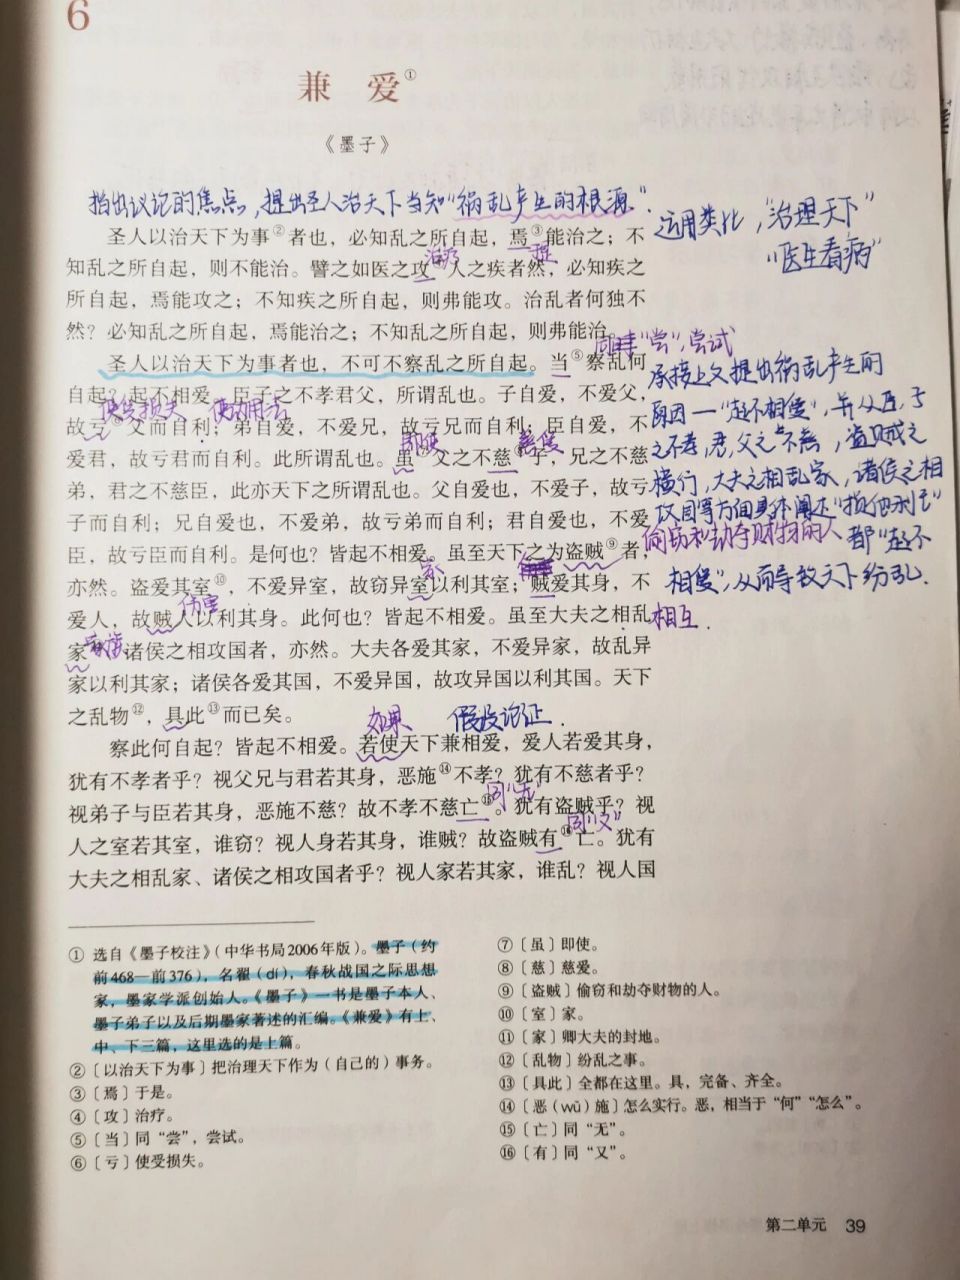 6
兼 爱①
《墨子》
指出议论的焦点,提出圣人治天下当知"祸乱产生的根源".
运用类比,"治理天下"
"医生看病"
圣人以治天下为事②者也，必知乱之所自起，焉③能治之；不
治疗
知乱之所自起，则不能治。譬之如医之攻④人之疾者然，必知疾之
所自起，焉能攻之；不知疾之所自起，则弗能攻。治乱者何独不
然？必知乱之所自起，焉能治之；不知乱之所自起，则弗能治。
"尝",尝试
圣人以治天下为事者也，不可不察乱之所自起。当⑤察乱何
承接上文提出祸乱产生的
自起？起不相爱。臣子之不孝君父，所谓乱也。子自爱，不爱父，
原因一"起不相爱",并从臣、子
使受损失 使动用法
故亏⑥父而自利；弟自爱，不爱兄，故亏兄而自利；臣自爱，不
之不孝,君,父之不慈,盗贼之
即使 慈爱
爱君，故亏君而自利。此所谓乱也。虽⑦父之不慈⑧子，兄之不慈
横行,大夫之相乱家,诸侯之相
弟，君之不慈臣，此亦天下之所谓乱也。父自爱也，不爱子，故亏
攻国等方面具体阐述"损他利己"
子而自利；兄自爱也，不爱弟，故亏弟而自利；君自爱也，不爱
偷窃和劫夺财物的人
都"起不
臣，故亏臣而自利。是何也？皆起不相爱。虽至天下之为盗贼⑨者，
家
亦然。盗爱其室⑩，不爱异室，故窃异室以利其室；贼爱其身，不
相爱",从而导致天下纷乱.
伤害
爱人，故贼人以利其身。此何也？皆起不相爱。虽至大夫之相乱
相互.
家⑪、诸侯之相攻国者，亦然。大夫各爱其家，不爱异家，故乱异
家以利其家；诸侯各爱其国，不爱异国，故攻异国以利其国。天下
之乱物⑫，具此⑬而已矣。
如果 假设论证.
察此何自起？皆起不相爱。若使天下兼相爱，爱人若爱其身，
犹有不孝者乎？视父兄与君若其身，恶施⑭不孝？犹有不慈者乎？
同"无"
视弟子与臣若其身，恶施不慈？故不孝不慈亡⑮。犹有盗贼乎？视
同"又"
人之室若其室，谁窃？视人身若其身，谁贼？故盗贼有⑯亡。犹有
大夫之相乱家、诸侯之相攻国者乎？视人家若其家，谁乱？视人国
① 选自《墨子校注》（中华书局2006年版）。墨子（约
前468—前376），名翟（dí），春秋战国之际思想
家，墨家学派创始人。《墨子》一书是墨子本人、
墨子弟子以及后期墨家著述的汇编。《兼爱》有上、
中、下三篇，这里选的是上篇。
② 〔以治天下为事〕把治理天下作为（自己的）事务。
③ 〔焉〕于是。
④ 〔攻〕治疗。
⑤ 〔当〕同“尝”，尝试。
⑥ 〔亏〕使受损失。
⑦ 〔虽〕即使。
⑧ 〔慈〕慈爱。
⑨ 〔盗贼〕偷窃和劫夺财物的人。
⑩ 〔室〕家。
⑪ 〔家〕卿大夫的封地。
⑫ 〔乱物〕纷乱之事。
⑬ 〔具此〕全都在这里。具，完备、齐全。
⑭ 〔恶（wū）施〕怎么实行。恶，相当于“何”“怎么”。
⑮ 〔亡〕同“无”。
⑯ 〔有〕同“又”。
第二单元 39